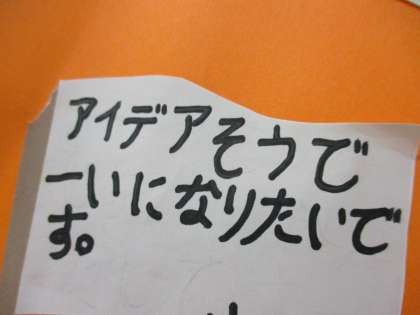 アイデアそうで
一いになりたいで
す。